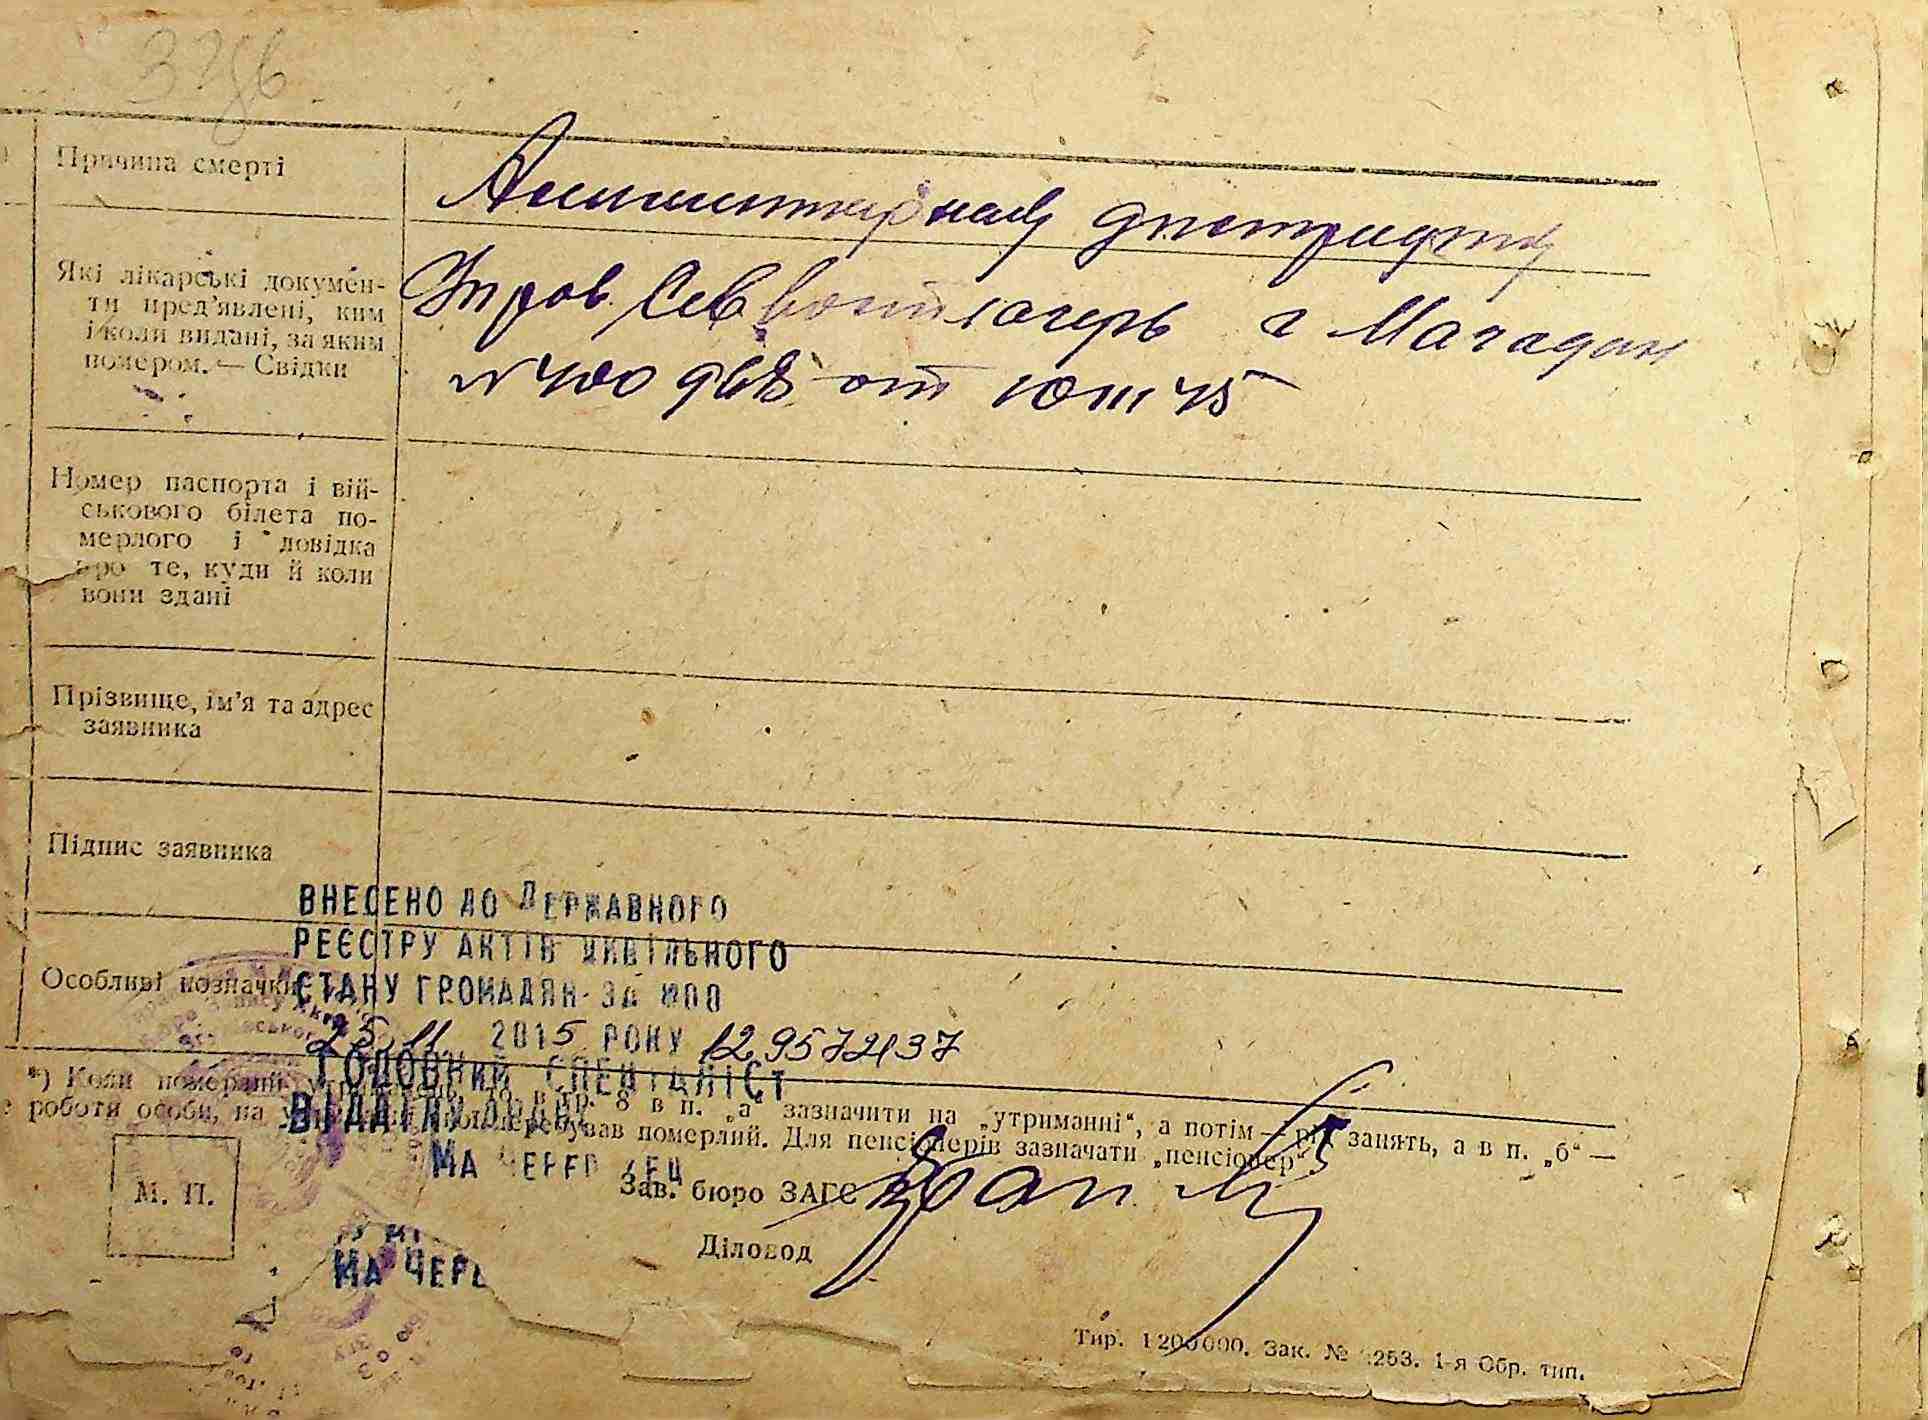 3286
Причина смерті
Алиментарная дистрофия
Які лікарські докумен-
ти пред'явлені, ким
і коли видані, за яким
номером. — Свідки
Упров. Севвостлагерь г Магадан
№ 400 от 10 III 45
Номер паспорта і вій-
ськового білета по-
мерлого і довідка
про те, куди й коли
вони здані
Прізвище, ім'я та адрес
заявника
Підпис заявника
ВНЕСЕНО ДО ДЕРЖАВНОГО
РЕЄСТРУ АКТІВ ЦИВІЛЬНОГО
Особливі позначки
СТАНУ ГРОМАДЯН ЗА
25 11 2015 РОКУ 129572137
ГОЛОВНИЙ СПЕЦІАЛІСТ
ВІДДІЛУ
*) Коли померлий в гр. 8 в п. „а" зазначити на „утриманні", а потім — рід занять, а в п. „б" —
роботи особи, на перебував померлий. Для пенсіонерів зазначати „пенсіонер".
М. П.
Зав. бюро ЗАГС
Діловод
Тир. 1200000. Зак. № 1-я Обр. тип.